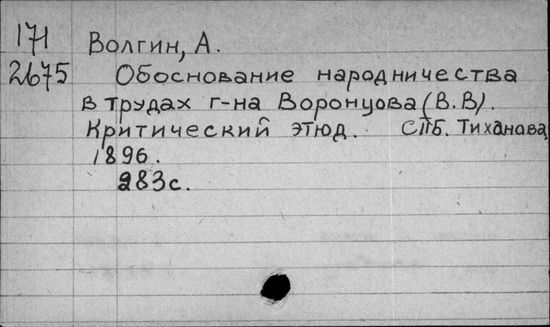 171 Волгин, А.
2675 Обоснование народничества
в трудах г-на Воронцова (В.В).
Критический этюд. СПБ. Тиханова,
1896.
283с.